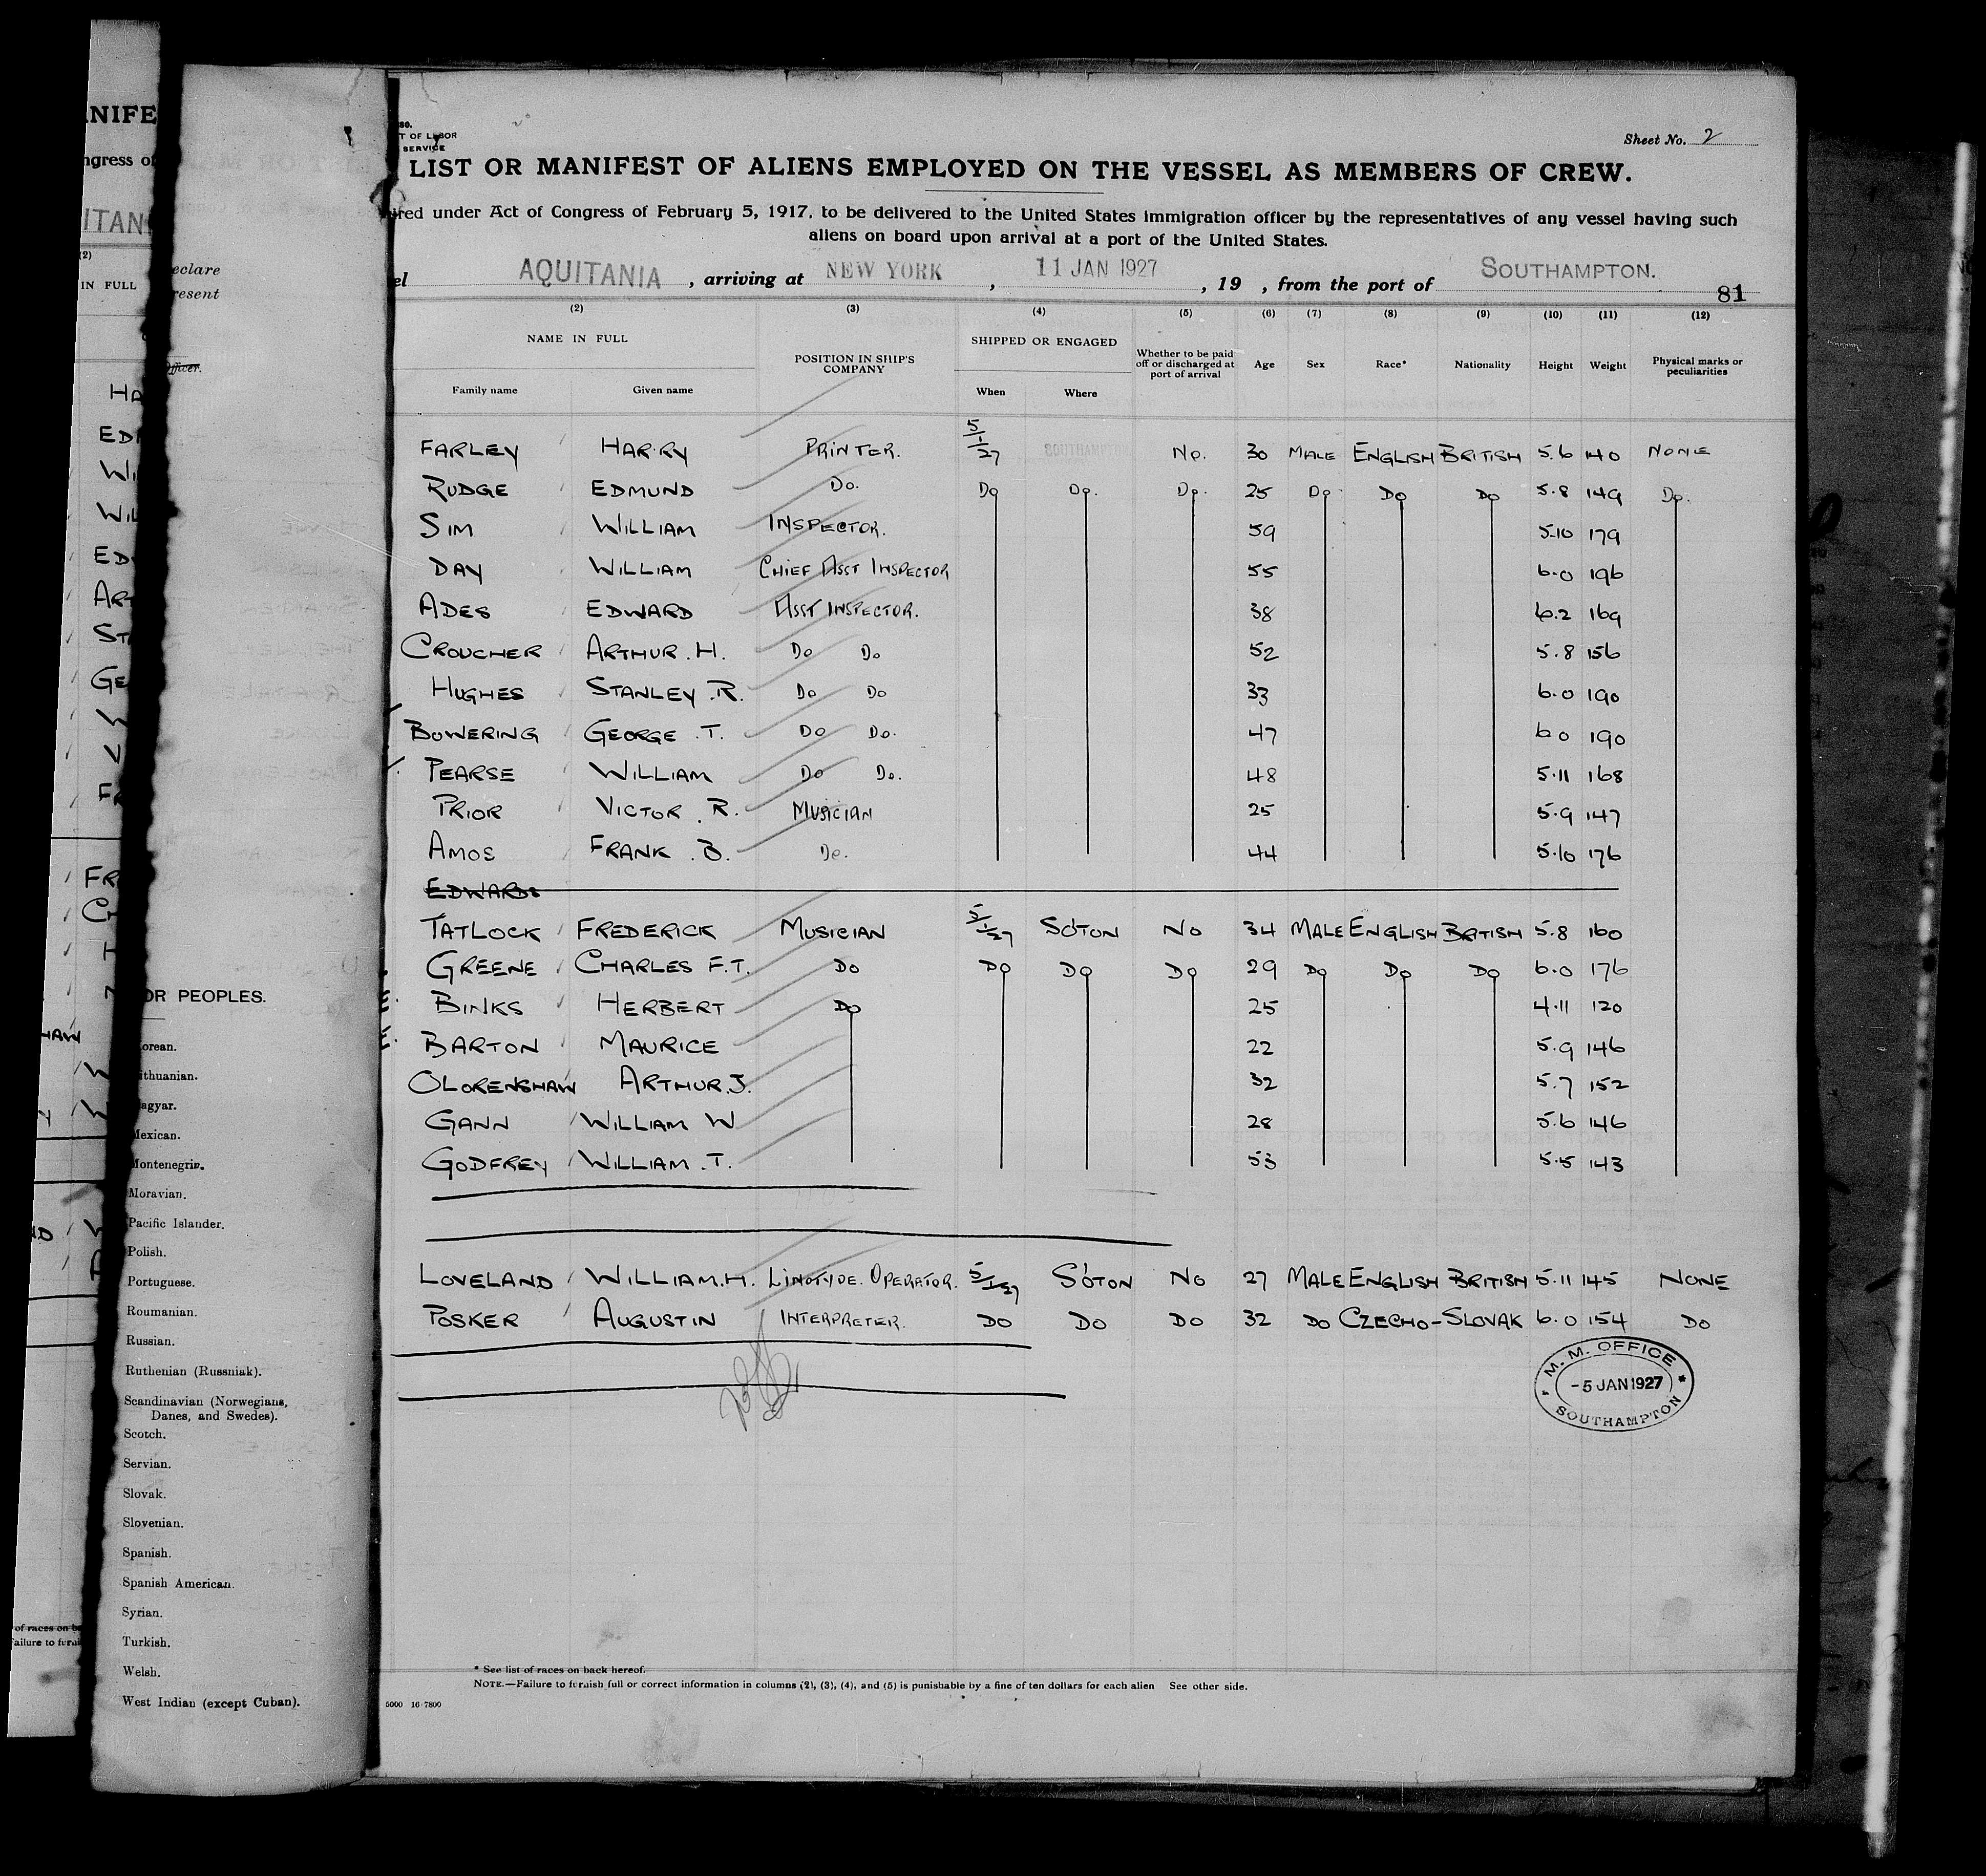 Sheet No. 2
T OF LABOR
SERVICE
LIST OR MANIFEST OF ALIENS EMPLOYED ON THE VESSEL AS MEMBERS OF CREW.
red under Act of Congress of February 5, 1917, to be delivered to the United States immigration officer by the representatives of any vessel having such
aliens on board upon arrival at a port of the United States.
el AQUITANIA, arriving at NEW YORK, 11 JAN 1927, 19 , from the port of SOUTHAMPTON.
81
(2) (3) (4) (5) (6) (7) (8) (9) (10) (11) (12)
NAME IN FULL POSITION IN SHIP'S COMPANY SHIPPED OR ENGAGED Whether to be paid off or discharged at port of arrival Age Sex Race* Nationality Height Weight Physical marks or peculiarities
Family name Given name When Where
FARLEY HARRY PRINTER. 5/1/27 SOUTHAMPTON No. 30 MALE ENGLISH BRITISH 5.6 140 NONE
RUDGE EDMUND Do. Do Do. Do. 25 Do Do Do 5.8 149 Do.
SIM WILLIAM INSPECTOR. 59 5.10 179
DAY WILLIAM CHIEF ASST INSPECTOR 55 6.0 196
ADES EDWARD ASST INSPECTOR. 38 6.2 169
CROUCHER ARTHUR.H. Do Do 52 5.8 156
HUGHES STANLEY.R. Do Do 33 6.0 190
BOWERING GEORGE.T. Do Do. 47 6.0 190
PEARSE WILLIAM Do Do. 48 5.11 168
PRIOR VICTOR.R. MUSICIAN 25 5.9 147
AMOS FRANK.B. Do. 44 5.10 176
EDWARDS
TATLOCK FREDERICK MUSICIAN 5/1/27 SO'TON No 34 MALE ENGLISH BRITISH 5.8 160
GREENE CHARLES F.T. Do Do Do Do 29 Do Do Do 6.0 176
BINKS HERBERT Do 25 4.11 120
BARTON MAURICE 22 5.9 146
OLORENSHAW ARTHUR.J. 32 5.7 152
GANN WILLIAM W 28 5.6 146
GODFREY WILLIAM.T. 53 5.5 143
LOVELAND WILLIAM.H. LINOTYPE. OPERATOR. 5/1/27 SO'TON No 27 MALE ENGLISH BRITISH 5.11 145 NONE
POSKER AUGUSTIN INTERPRETER. Do Do Do 32 Do CZECHO-SLOVAK 6.0 154 Do
M. M. OFFICE
-5 JAN 1927
SOUTHAMPTON
* See list of races on back hereof.
NOTE.—Failure to furnish full or correct information in columns (2), (3), (4), and (5) is punishable by a fine of ten dollars for each alien See other side.
5000 16-7800
eclare
resent
Officer.
OR PEOPLES.
orean.
ithuanian.
agyar.
Mexican.
Montenegrin.
Moravian.
Pacific Islander.
Polish.
Portuguese.
Roumanian.
Russian.
Ruthenian (Russniak).
Scandinavian (Norwegians,
Danes, and Swedes).
Scotch.
Servian.
Slovak.
Slovenian.
Spanish.
Spanish American.
Syrian.
Turkish.
Welsh.
West Indian (except Cuban).